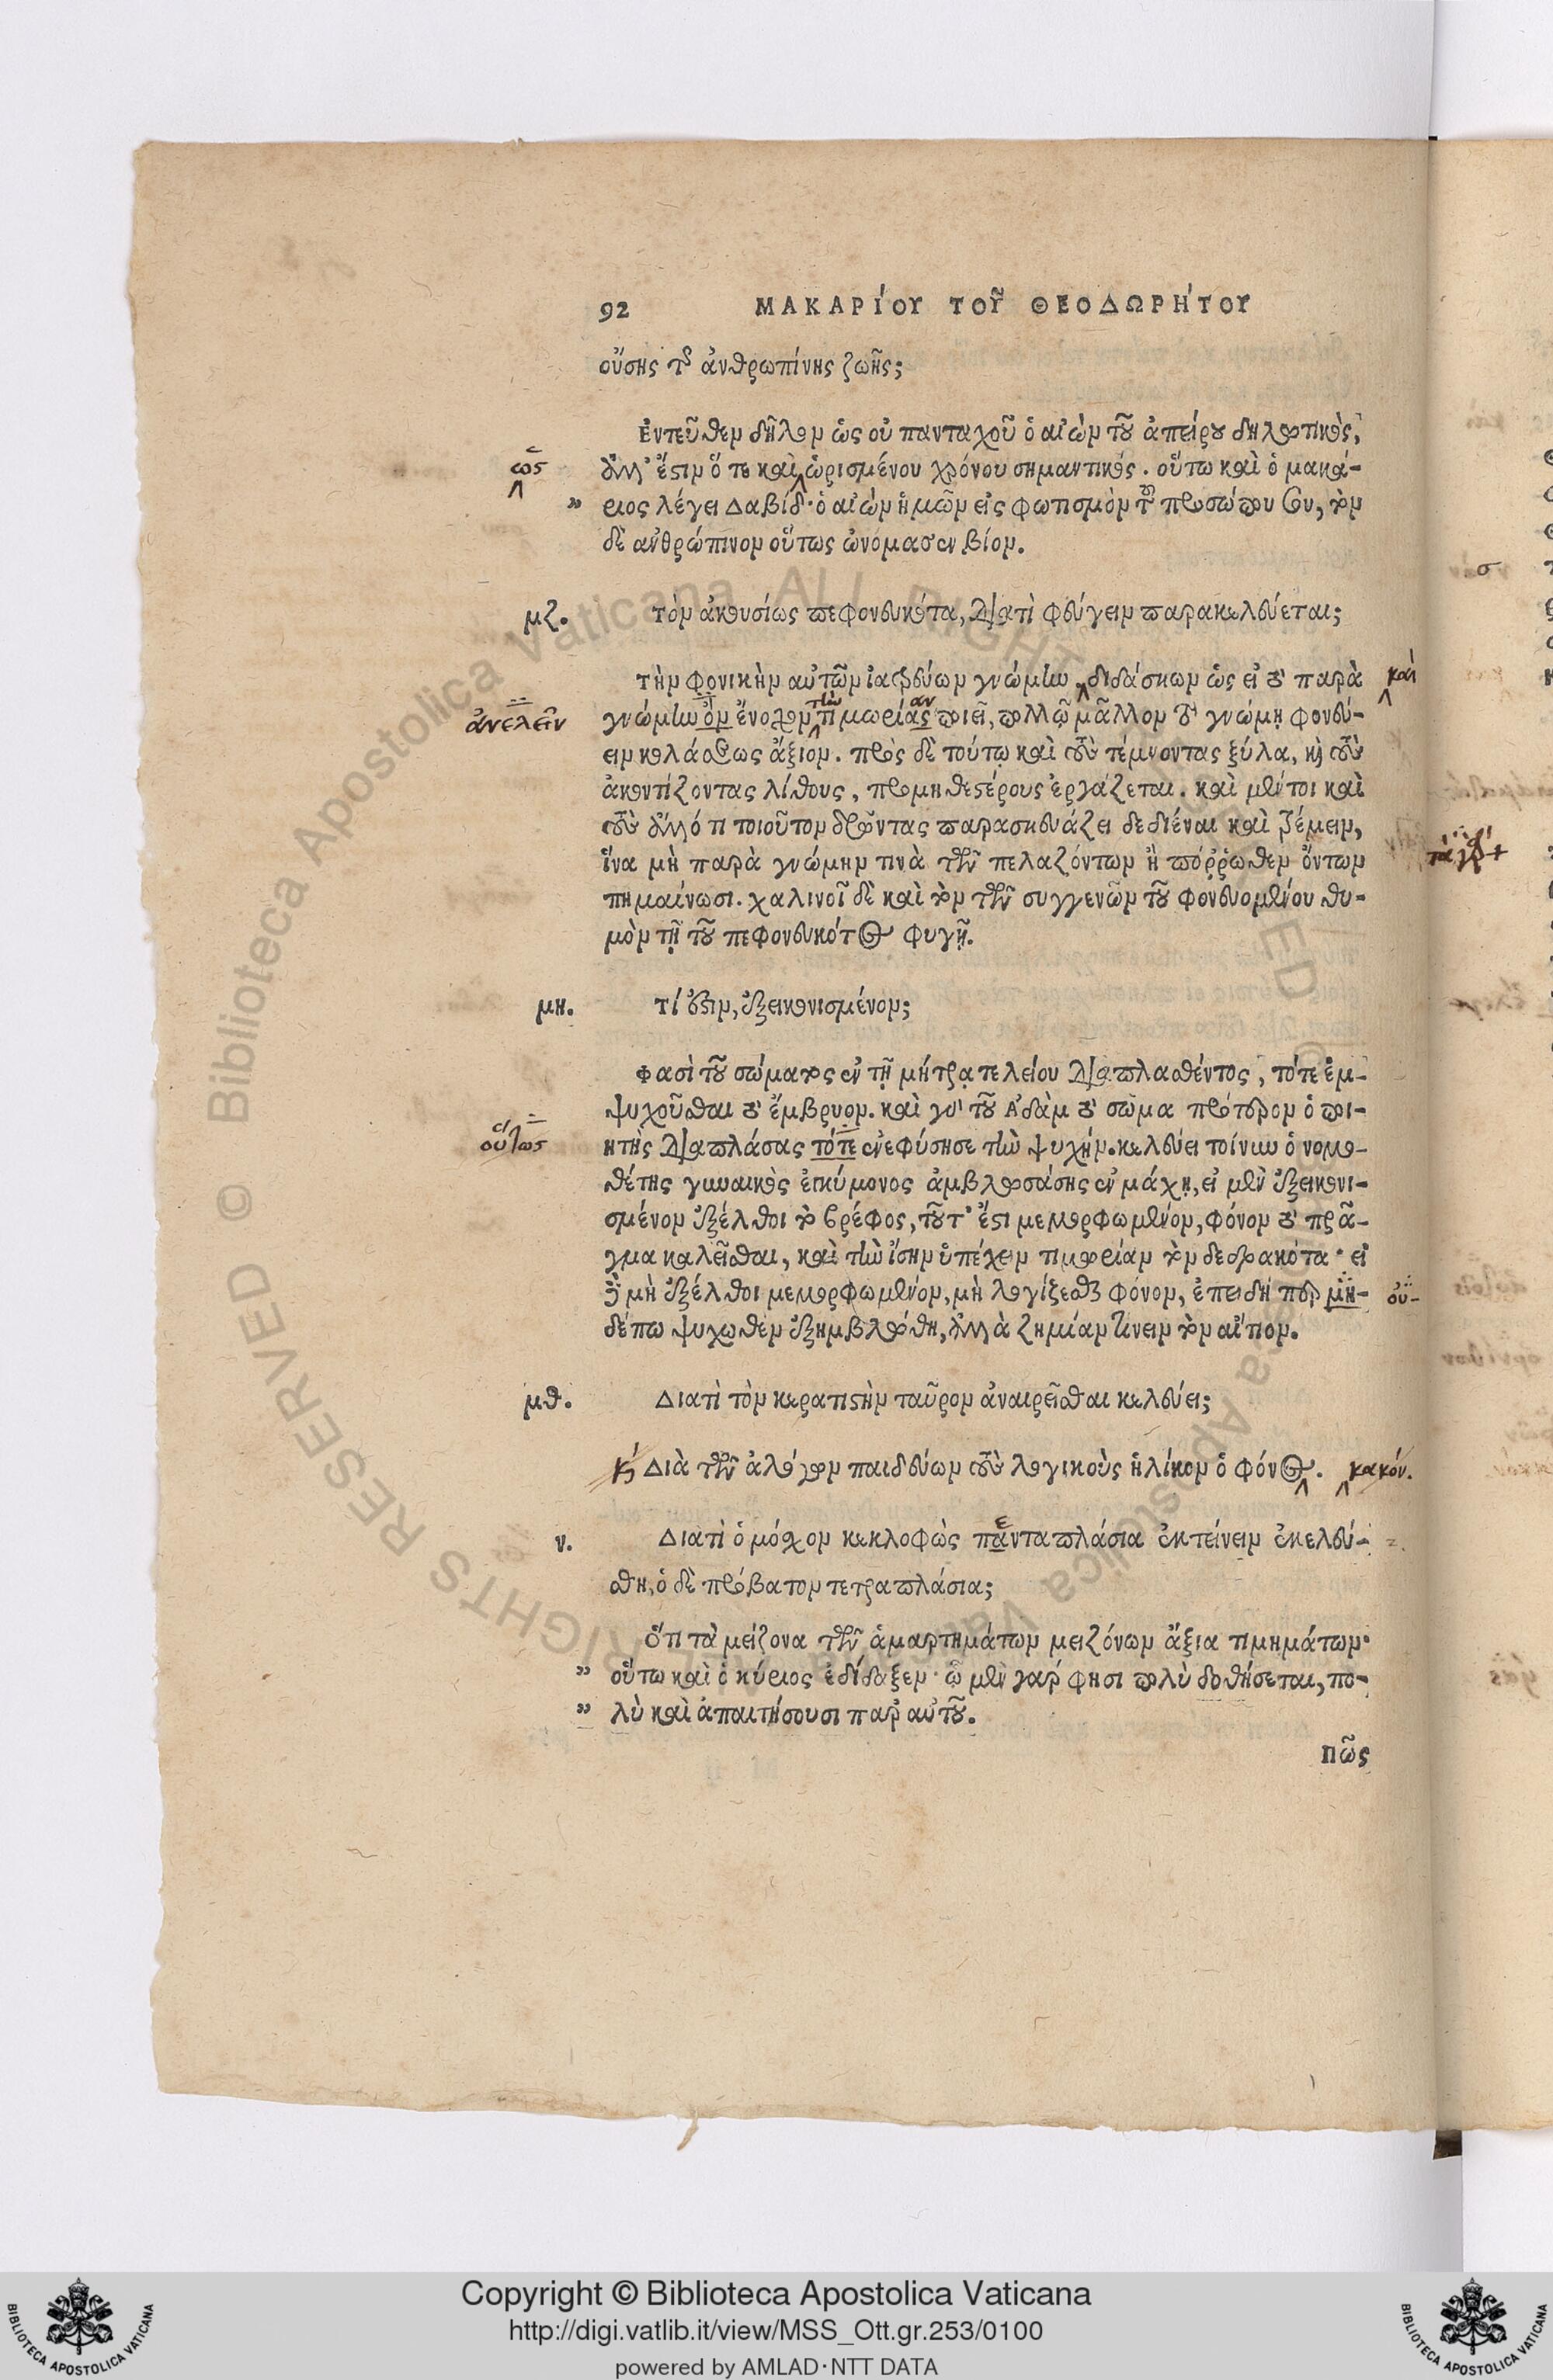 92 ΜΑΚΑΡΊΟΥ ΤΟΥ͂ ΘΕΟΔΩΡΉΤΟΥ
οὔσης τῆς ἀνθρωπίνης ζωῆς;
Ἐντεῦθεν δῆλον ὡς οὐ πανταχοῦ ὁ αἰὼν τοῦ ἀπείρου δηλωτικὸς,
ὡς
ἀλλ' ἔστιν ὅτε καὶ ὡρισμένου χρόνου σημαντικός. οὕτω καὶ ὁ μακά-
" ριος λέγει Δαβίδ· ὁ αἰὼν ἡμῶν εἰς φωτισμὸν τοῦ προσώπου σου, τὸν
δὲ ἀνθρώπινον οὕτως ὠνόμασεν βίον.
μζ. Τὸν ἀκουσίως πεφονευκότα, διατὶ φεύγειν παρακελεύεται;
Τὴν φονικὴν αὐτῶν ἰατρεύων γνώμην διδάσκων ὡς εἰ τὸ παρὰ καὶ
ἀνελεῖν
γνώμην ὂν ἔνοχον τὴν τιμωρίας αν ποιεῖ, πολλῷ μᾶλλον τὸ γνώμῃ φονεύ-
ειν κολάσεως ἄξιον. πρὸς δὲ τούτῳ καὶ τοὺς τέμνοντας ξύλα, καὶ τοὺς
ἀκοντίζοντας λίθους, προμηθεστέρους ἐργάζεται. καὶ μέντοι καὶ
τοὺς ἄλλό τι τοιοῦτον δρῶντας παρασκευάζει δεδιέναι καὶ τρέμειν,
ἵνα μὴ παρὰ γνώμην τινὰ τῶν πελαζόντων ἢ πόῤῥωθεν ὄντων
πημαίνωσι. χαλινοῖ δὲ καὶ τὸν τῶν συγγενῶν τοῦ φονευομένου θυ-
μὸν τῇ τοῦ πεφονευκότος φυγῇ.
μη. Τί ἐστιν, ἐξεικονισμένον;
Φασὶ τοῦ σώματος ἐν τῇ μήτρᾳ τελείου διαπλασθέντος, τότε ἐμ-
ψυχοῦσθαι τὸ ἔμβρυον. καὶ γὰρ τοῦ Ἀδὰμ τὸ σῶμα πρότερον ὁ ποι-
οὕτως
ητὴς διαπλάσας τότε ἐνεφύσησε τὴν ψυχήν. κελεύει τοίνυν ὁ νομο-
θέτης γυναικὸς ἐγκύμονος ἀμβλωσάσης ἐν μάχῃ, εἰ μὲν ἐξεικονι-
σμένον ἐξέλθοι τὸ βρέφος, τοῦτ' ἔστι μεμορφωμένον, φόνον τὸ πρᾶ-
γμα καλεῖσθαι, καὶ τὴν ἴσην ὑπέχειν τιμωρίαν τὸν δεδρακότα· εἰ
δὲ μὴ ἐξέλθοι μεμορφωμένον, μὴ λογίζεσθαι φόνον, ἐπειδήπερ μη- οὐ-
δέπω ψυχωθὲν ἐξημβλώθη, ἀλλὰ ζημίαν τίνειν τὸν αἴτιον.
μθ. Διατὶ τὸν κερατιστὴν ταῦρον ἀναιρεῖσθαι κελεύει;
καὶ Διὰ τῶν ἀλόγων παιδεύων τοὺς λογικοὺς ἡλίκον ὁ φόνος. κακόν.
ν. Διατὶ ὁ μόσχον κεκλοφὼς πανταπλάσια ἐκτείνειν ἐκελεύ-
ε
σθη, ὁ δὲ πρόβατον τετραπλάσια;
Ὅτι τὰ μείζονα τῶν ἁμαρτημάτων μειζόνων ἄξια τιμημάτων·
" οὕτω καὶ ὁ κύριος ἐδίδαξεν· ᾧ μὲν γάρ φησι πολὺ δοθήσεται, πο-
" λὺ καὶ ἀπαιτήσουσι παρ' αὐτοῦ.
Πῶς
Copyright © Biblioteca Apostolica Vaticana
http://digi.vatlib.it/view/MSS_Ott.gr.253/0100
powered by AMLAD·NTT DATA